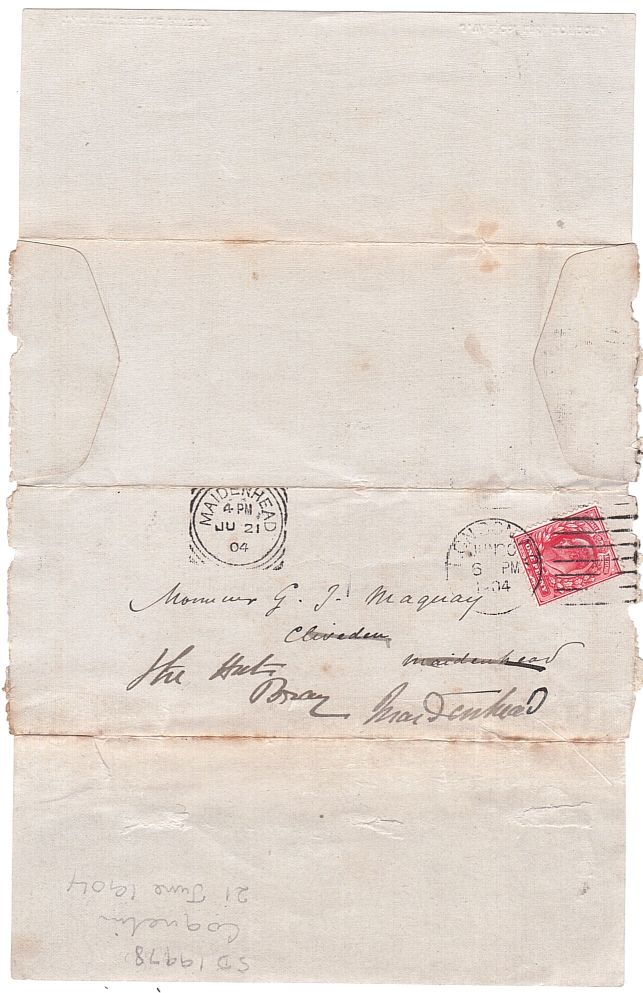 MAIDENHEAD
4-PM
JU 21
04
LONDON
6 PM
1904
Monsieur G. J. Maquay
Cliveden
Maidenhead
The Hut
Bray
Maidenhead
SD 19978
Coquelin
21 June 1904